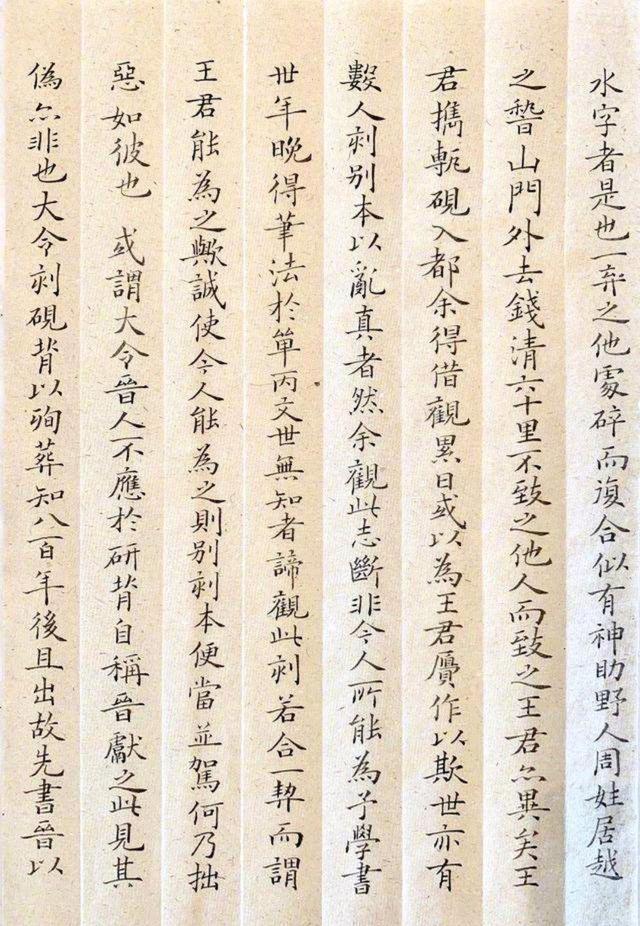 水字者是也一弃之他處碎而復合似有神助野人周姓居越
之稽山門外去錢清六十里不致之他人而致之王君亦異矣王
君攜甎硯入都余得借觀累日或以為王君贋作以欺世亦有
數人刻別本以亂真者然余觀此志斷非今人所能為予學書
卅年晚得筆法於單丙文世無知者諦觀此刻若合一契而謂
王君能為之歟誠使今人能為之則別刻本便當並駕何乃拙
惡如彼也 或謂大令晉人不應於研背自稱晉獻之此見其
偽亦非也大令刻硯背以殉葬知八百年後且出故先書晉以